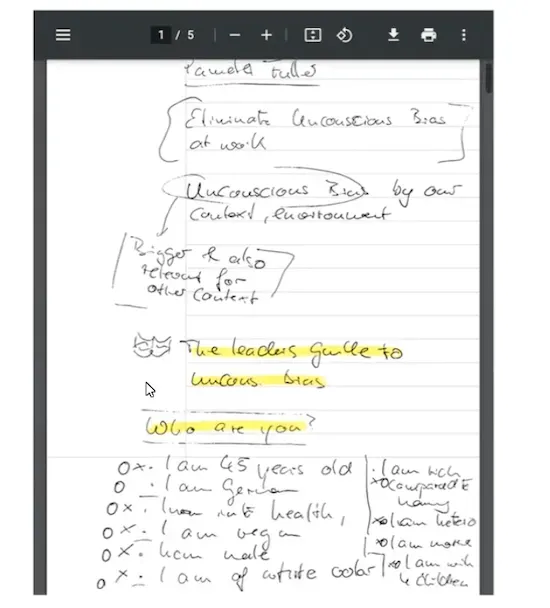 1 / 5
Pamela Fuller
Eliminate Unconscious Bias
at work
Unconscious Bias by our
Context, environment
Bigger & also
relevant for
other Context
The leaders guide to
uncons. bias
Who are you?
I am 45 years old
I am German
health,
I am vegan
I am male
I am of white color
I am rich
compared to
many
I am hetero
I am
I am with
4 children